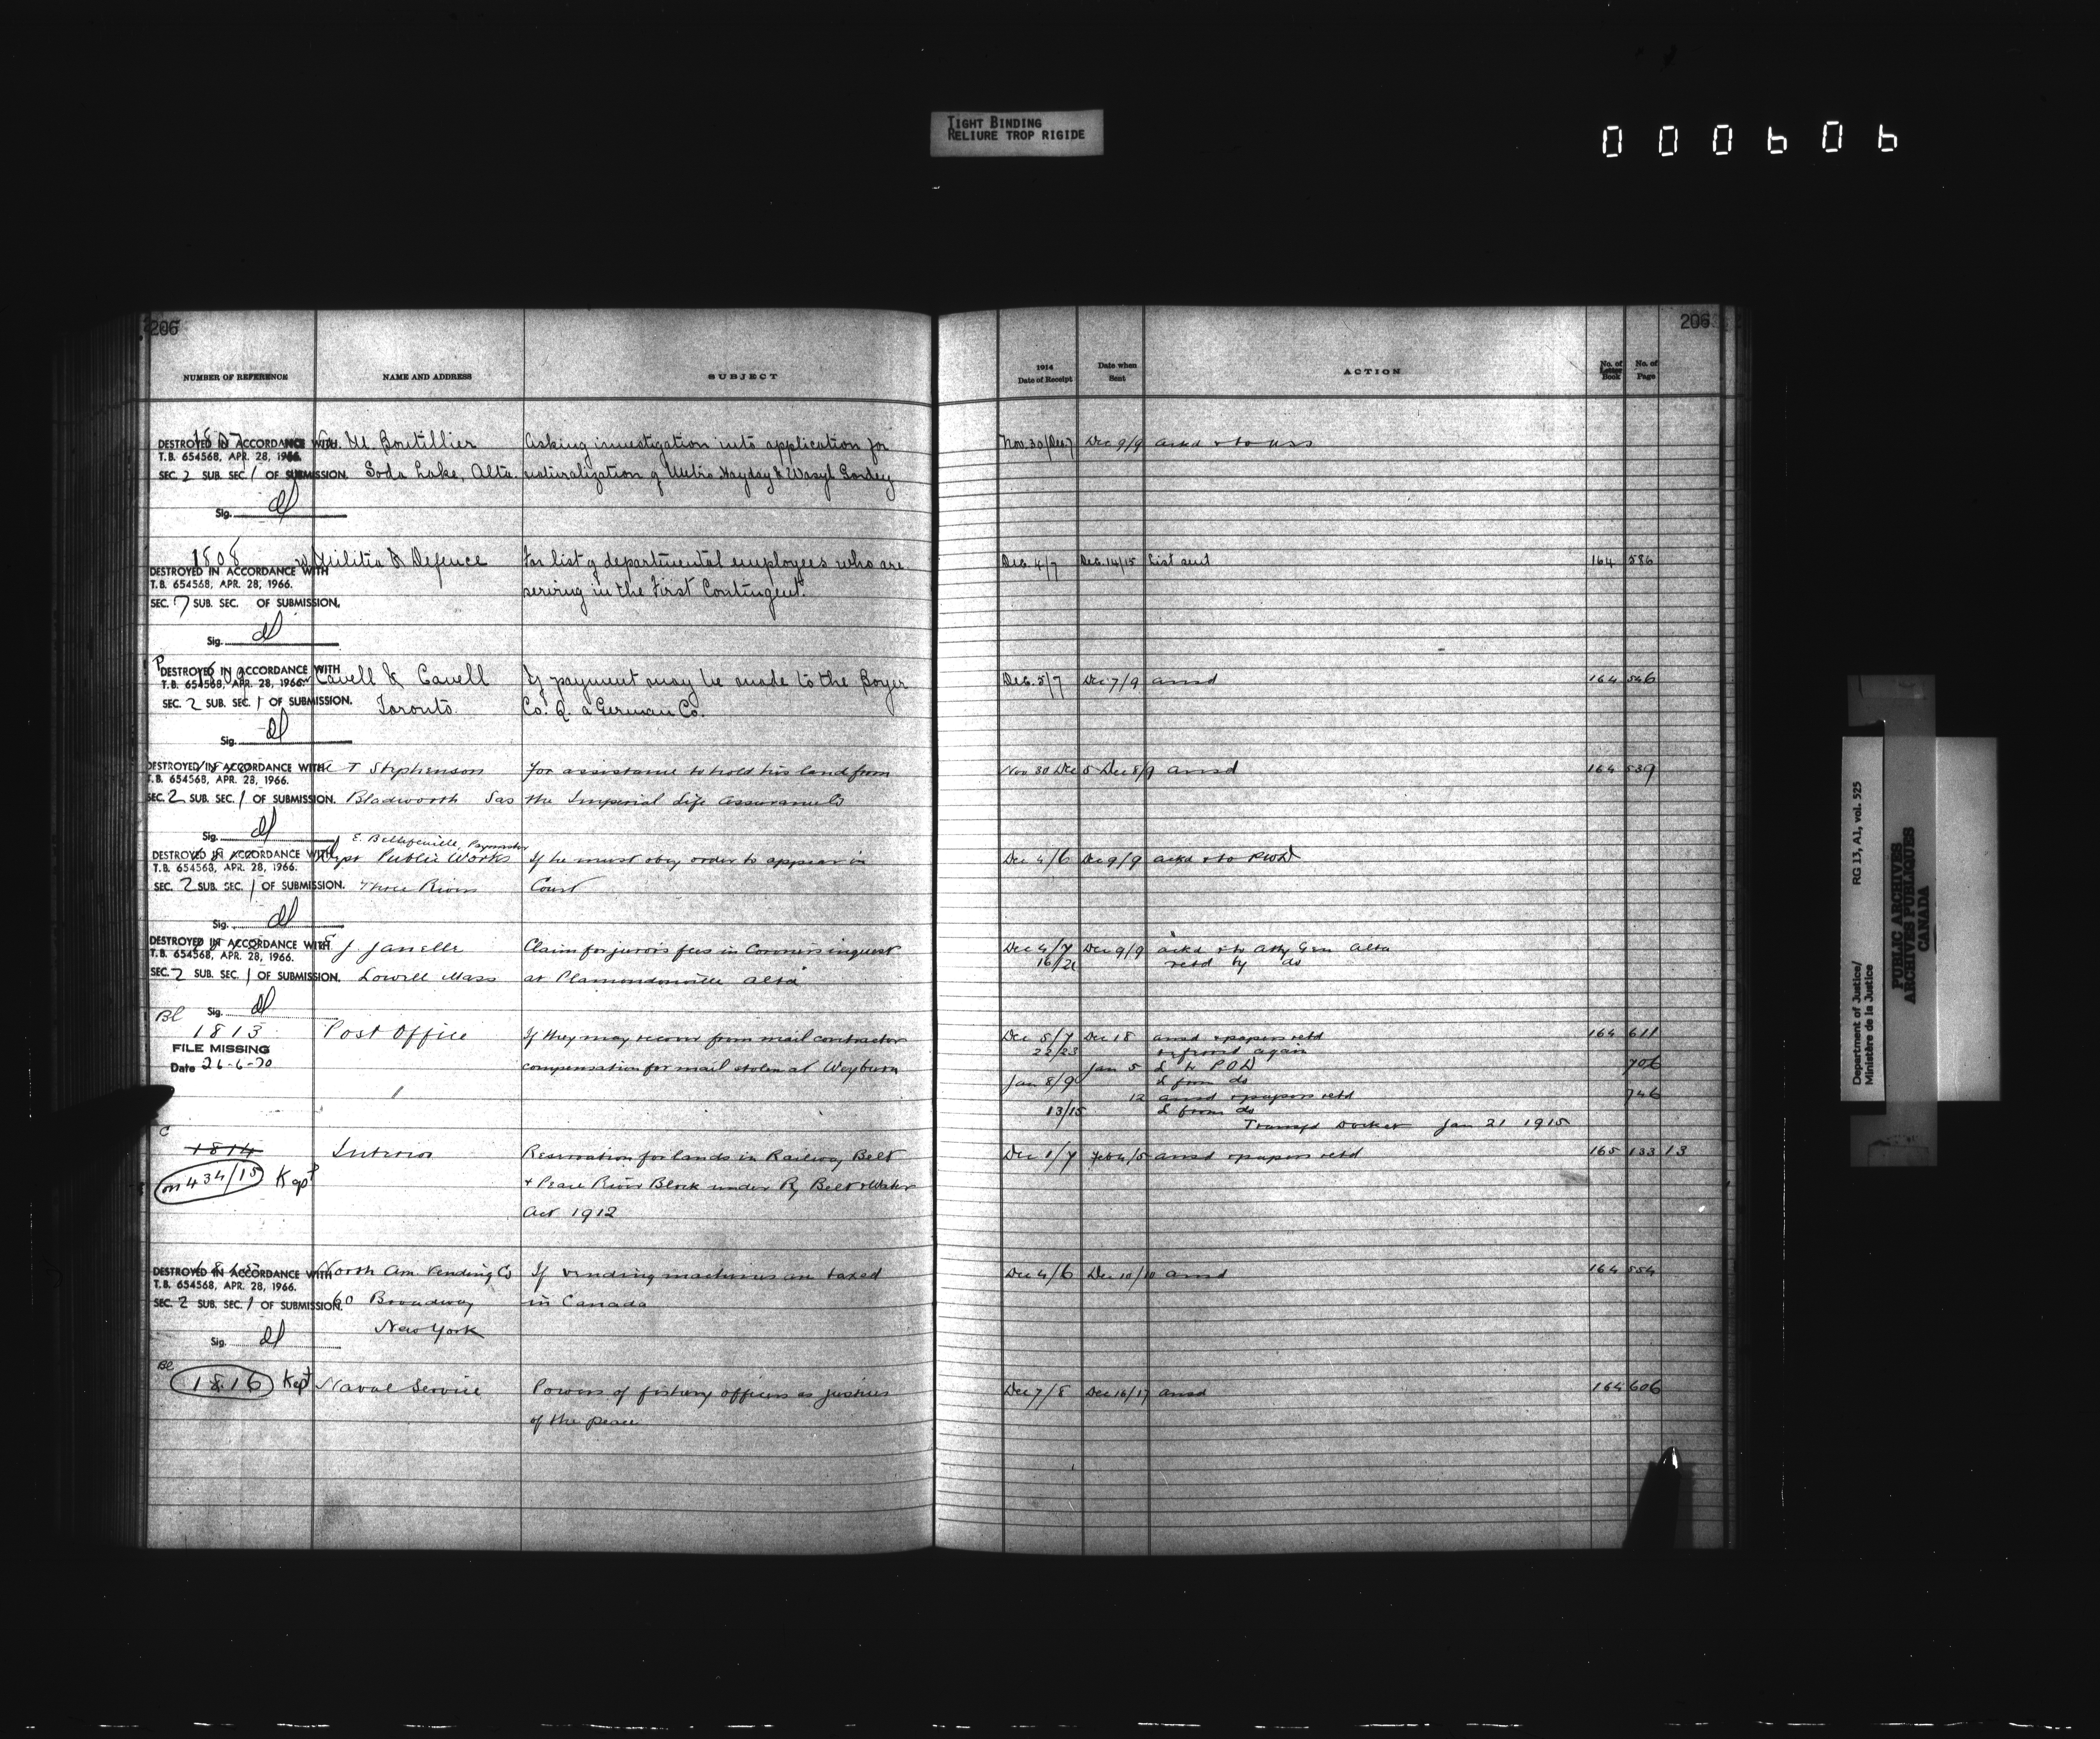 TIGHT BINDING
RELIURE TROP RIGIDE
000606
206
206
NUMBER OF REFERENCE NAME AND ADDRESS SUBJECT 1914 Date of Receipt Date when Sent ACTION No. of Letter Book No. of Page
1807 M. Boutillier Asking investigation into application for Nov. 30/Dec 7 Dec 9/9
DESTROYED IN ACCORDANCE WITH
T.B. 654568, APR. 28, 1966.
SEC. 2 SUB. SEC. 1 OF SUBMISSION. Soda Lake, Alta. naturalization of Hayday & Wasyl Gordey
Sig.
1808 Militia & Defence For list of departmental employees who are Dec. 4/7 Dec. 14/15 List sent 164 586
DESTROYED IN ACCORDANCE WITH
T.B. 654568, APR. 28, 1966.
SEC. 7 SUB. SEC. OF SUBMISSION. serving in the First Contingent.
Sig.
DESTROYED IN ACCORDANCE WITH
T.B. 654568, APR. 28, 1966. Cavell & Cavell If payment may be made to the Boyer Dec. 5/7 Dec 7/9 ansd 164 546
SEC. 2 SUB. SEC. 1 OF SUBMISSION. Toronto. Co. a German Co.
Sig.
DESTROYED IN ACCORDANCE WITH T Stephenson For assistance to hold his land from Nov 30 Dec 5 Dec 8/9 ansd 164 539
T.B. 654568, APR. 28, 1966.
SEC. 2 SUB. SEC. 1 OF SUBMISSION. Bladworth Sas the Imperial Life Assurance Co
Sig.
E. Bellefeuille, Paymaster
DESTROYED IN ACCORDANCE WITH Dept Public Works If he must obey order to appear in Dec 4/6 Dec 9/9 ackd & to PWD
T.B. 654568, APR. 28, 1966.
SEC. 2 SUB. SEC. 1 OF SUBMISSION. Three Rivers Court
Sig.
DESTROYED IN ACCORDANCE WITH J Janelle Claim for juror's fees in Coroners inquest Dec 4/7 Dec 9/9 ackd & to Atty Gen Alta
T.B. 654568, APR. 28, 1966. 16/21 retd by do
SEC. 2 SUB. SEC. 1 OF SUBMISSION. Lowell Mass at Plamondonville Alta
Sig.
Bl
1813 Post Office If they may recover from mail contractor Dec 5/7 Dec 18 ansd & papers retd 164 611
FILE MISSING 22/23 refered again
Date 26-6-70 compensation for mail stolen at Weyburn Jan 5 L to POD 706
Jan 8/9 L from do
12 ansd & papers retd 746
13/15 L from do
Transfd Docket Jan 21 1915
C
1814 Interior Reservation for lands in Railway Belt Dec 1/7 Feb 4/5 ansd & papers retd 165 133 13
on 434/15 Kept & Peace River Block under Ry Belt & Water
Act 1912
DESTROYED IN ACCORDANCE WITH North Am Vending Co If vending machines are taxed Dec 4/6 Dec 10/10 ansd 164 554
T.B. 654568, APR. 28, 1966.
SEC. 2 SUB. SEC. 1 OF SUBMISSION. 60 Broadway in Canada
New York
Sig.
Bl
1816 Kept Naval Service Powers of fishery officers as justices Dec 7/8 Dec 16/17 ansd 164 606
of the peace
Department of Justice/ RG 13, A1, vol. 525
Ministère de la Justice
PUBLIC ARCHIVES
ARCHIVES PUBLIQUES
CANADA